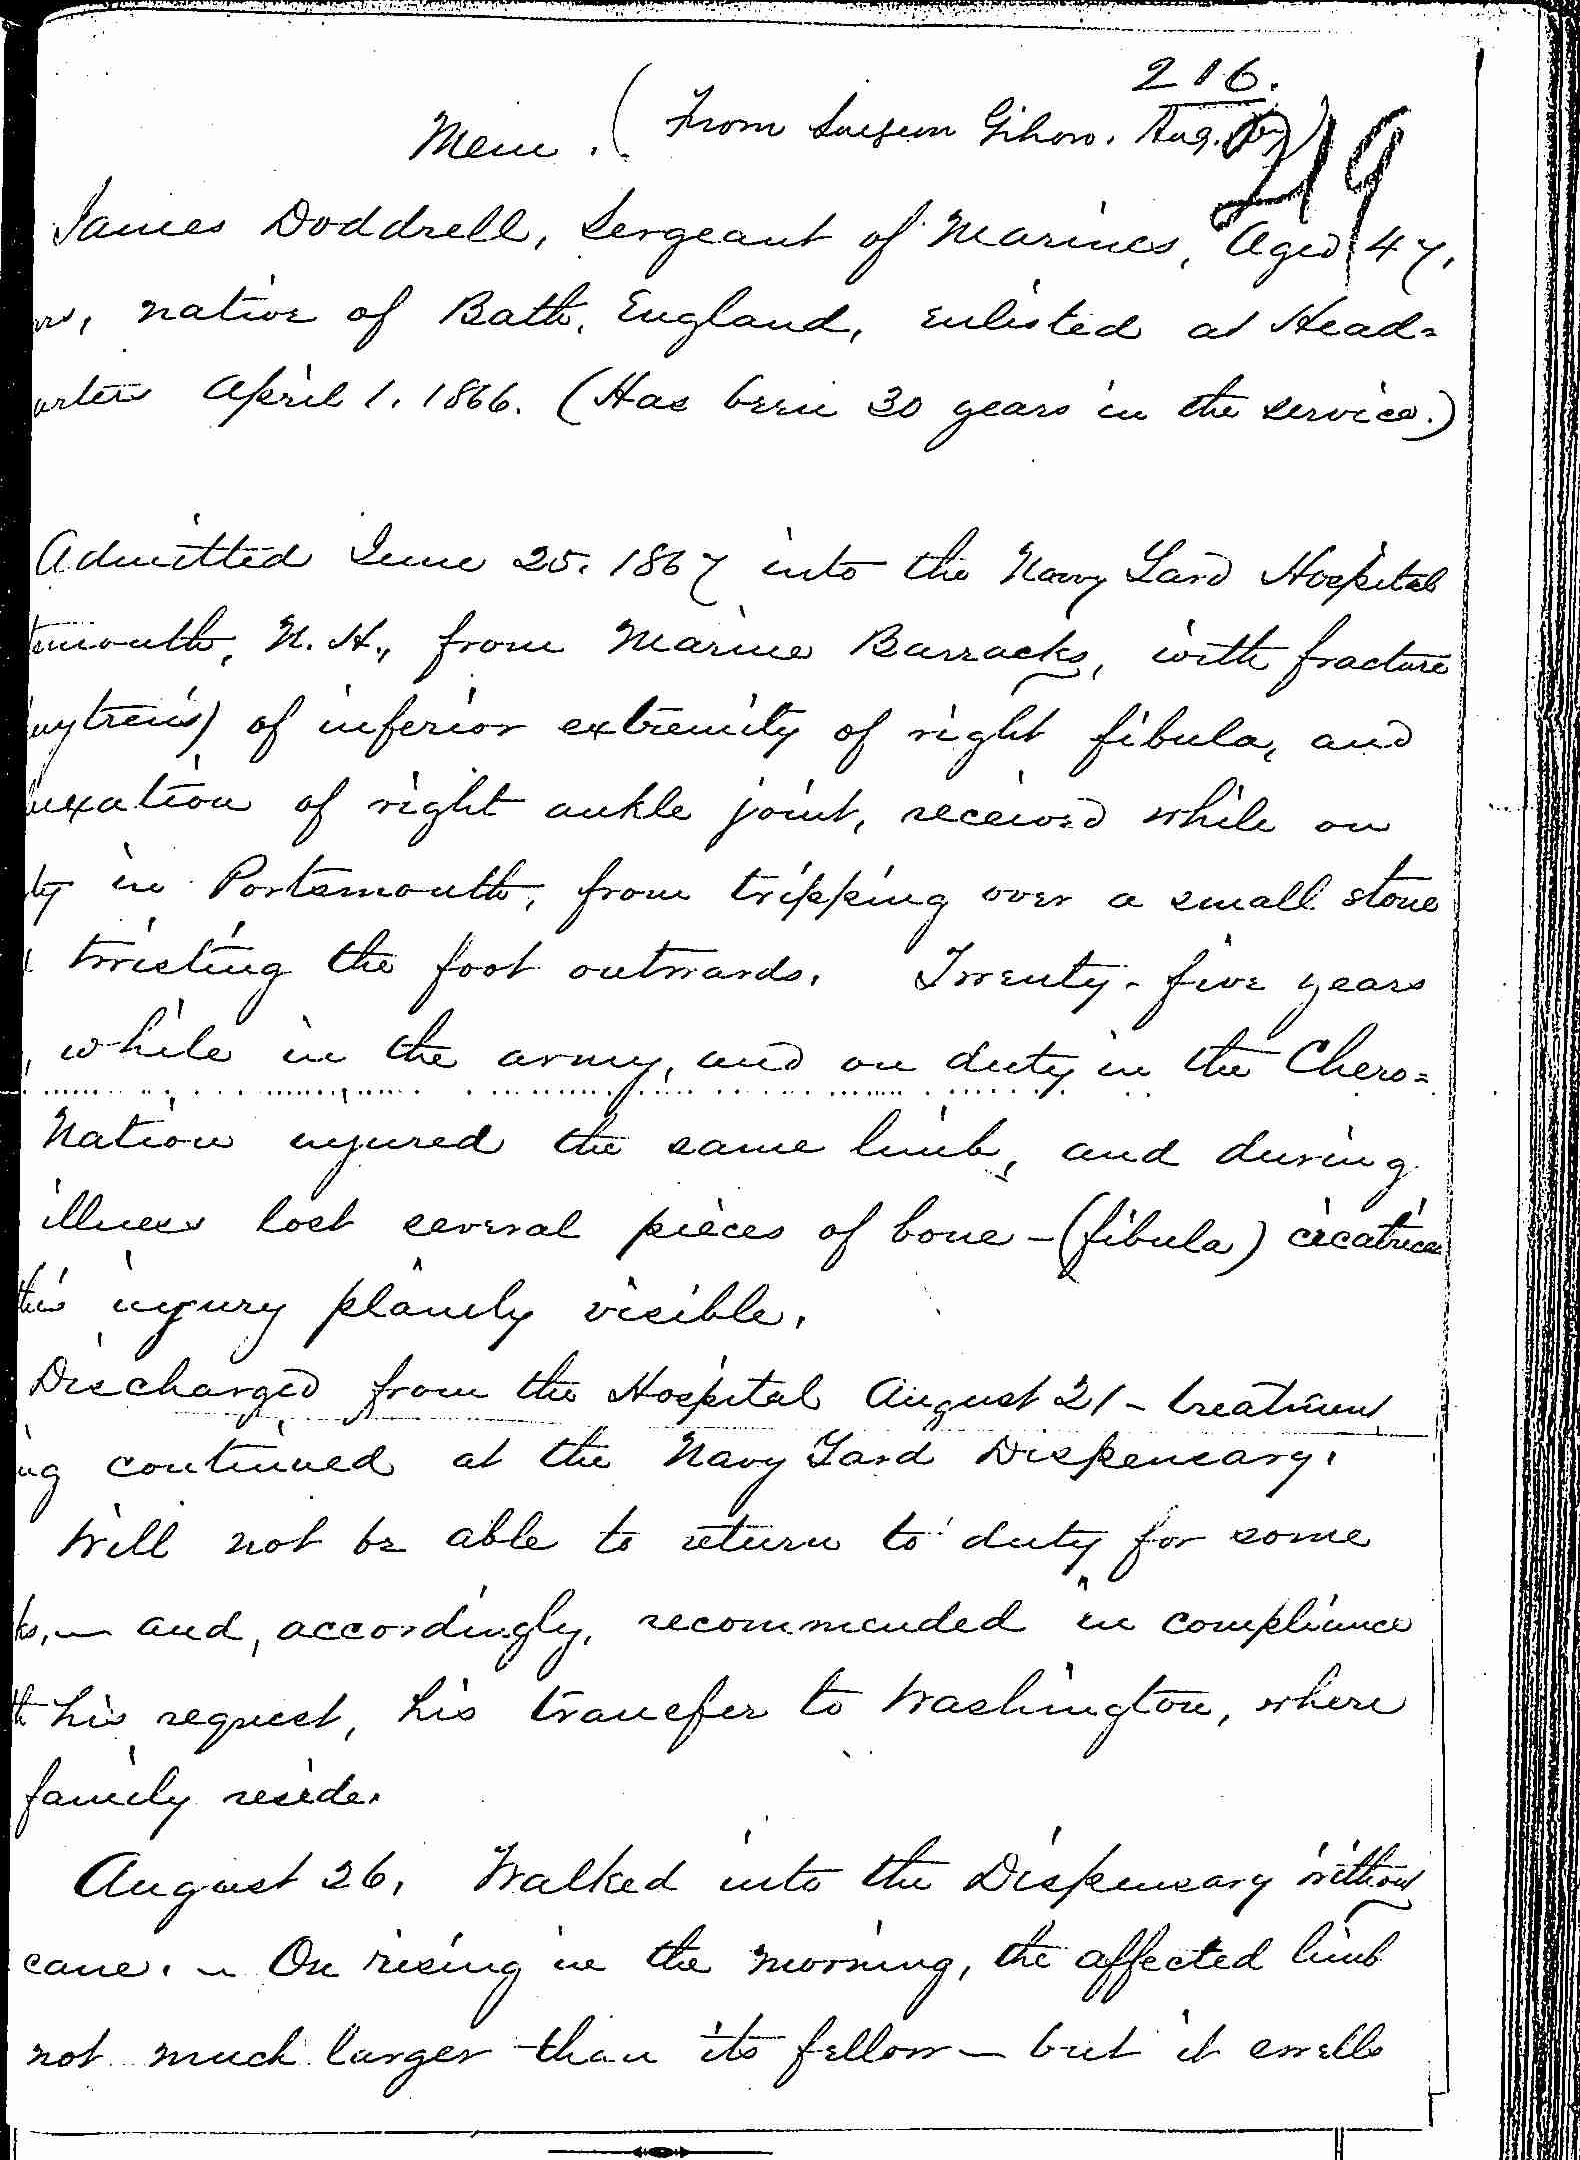 216.
Mem. (From Surgeon Gihon. Aug.
219
James Doddrell, Sergeant of Marines, Aged 47.
rs, native of Bath, England, enlisted at Head=
arters April 1. 1866. (Has been 30 years in the service.)
Admitted June 25. 1867 into the Navy Yard Hospital
tsmouth, N. H., from Marine Barracks, with fracture
uytren's) of inferior extremity of right fibula, and
uxation of right ankle joint, received while on
ty in Portsmouth, from tripping over a small stone
d twisting the foot outwards. Twenty-five years
, while in the army, and on duty in the Chero=
Nation injured the same limb, and during
illness lost several pieces of bone - (fibula) cicatrices
this injury plainly visible.
Discharged from the Hospital August 21 - treatment
ng continued at the Navy Yard Dispensary.
Will not be able to return to duty for some
ks, — and, accordingly, recommended in compliance
th his request, his transfer to Washington, where
family reside.
August 26. Walked into the Dispensary without
cane. — On rising in the morning, the affected limb
not much larger than its fellow — but it swells